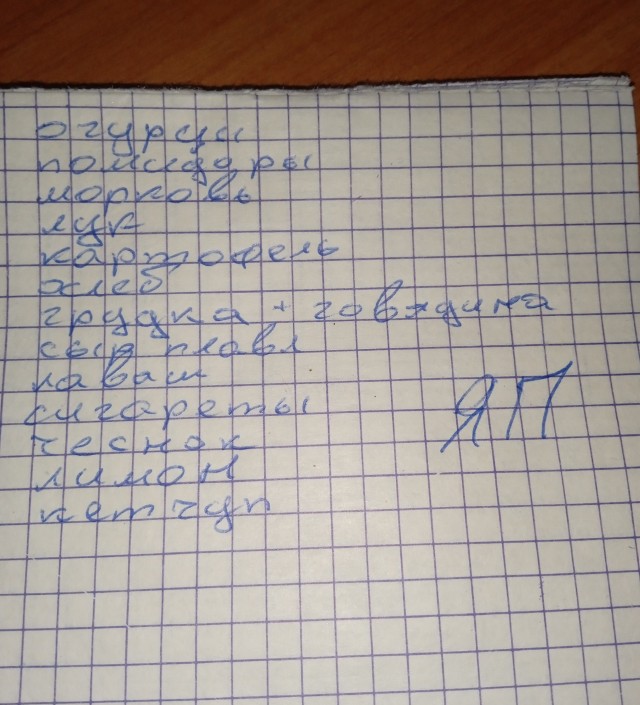 огурцы
помидоры
морковь
лук
картофель
хлеб
грудка + говядина
сыр плавл
лаваш
сигареты
ЯП
чеснок
лимон
кетчуп